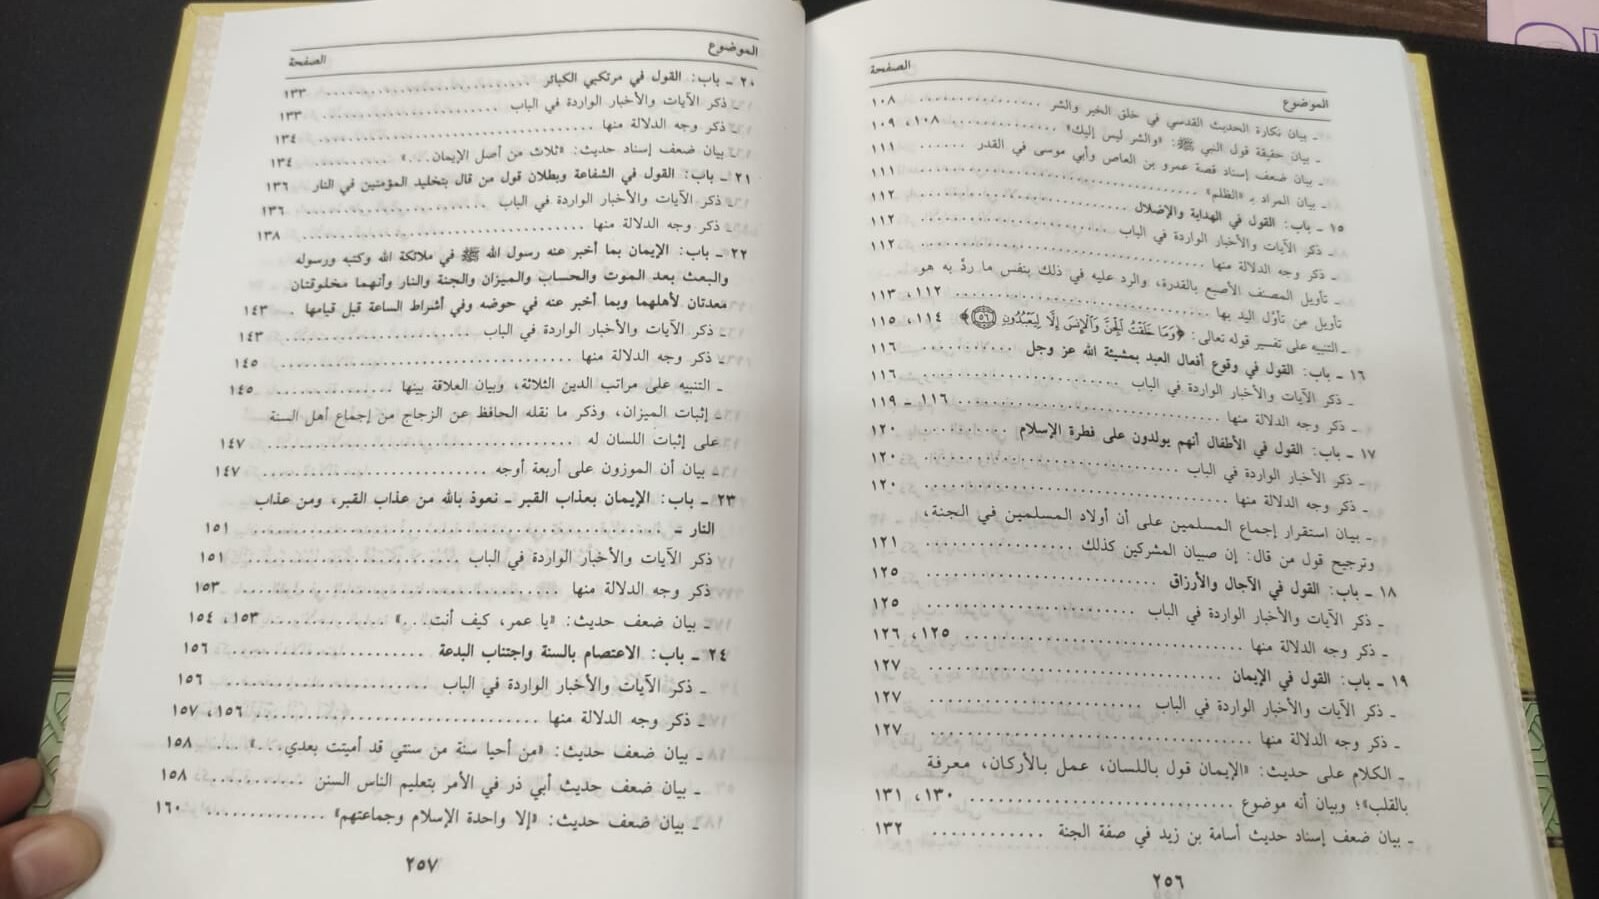 الموضوع الصفحة
ـ بيان نكارة الحديث القدسي في خلق الخير والشر ................ ١٠٨
ـ بيان حقيقة قول النبي ﷺ: «والشر ليس إليك» .............. ١٠٨، ١٠٩
ـ بيان ضعف إسناد قصة عمرو بن العاص وأبي موسى في القدر ...... ١١١
ـ بيان المراد بـ «الظلم» .............................. ١١١
١٥ ـ باب: القول في الهداية والإضلال .............................. ١١٢
ـ ذكر الآيات والأخبار الواردة في الباب .............................. ١١٢
ـ ذكر وجه الدلالة منها .............................. ١١٢
ـ تأويل المصنف الأصبع بالقدرة، والرد عليه في ذلك بنفس ما ردَّ به هو
تأويل من تأوَّل اليد بها .............................. ١١٢، ١١٣
ـ التنبيه على تفسير قوله تعالى: ﴿وَمَا خَلَقْتُ الْجِنَّ وَالْإِنسَ إِلَّا لِيَعْبُدُونِ ۝٥٦﴾ ١١٤، ١١٥
١٦ ـ باب: القول في وقوع أفعال العبد بمشيئة الله عز وجل ............ ١١٦
ـ ذكر الآيات والأخبار الواردة في الباب .............................. ١١٦
ـ ذكر وجه الدلالة منها .............................. ١١٦ ـ ١١٩
١٧ ـ باب: القول في الأطفال أنهم يولدون على فطرة الإسلام .......... ١٢٠
ـ ذكر الأخبار الواردة في الباب .............................. ١٢٠
ـ ذكر وجه الدلالة منها .............................. ١٢٠
ـ بيان استقرار إجماع المسلمين على أن أولاد المسلمين في الجنة،
وترجيح قول من قال: إن صبيان المشركين كذلك .................. ١٢١
١٨ ـ باب: القول في الآجال والأرزاق .............................. ١٢٥
ـ ذكر الآيات والأخبار الواردة في الباب .............................. ١٢٥
ـ ذكر وجه الدلالة منها .............................. ١٢٥، ١٢٦
١٩ ـ باب: القول في الإيمان .............................. ١٢٧
ـ ذكر الآيات والأخبار الواردة في الباب .............................. ١٢٧
ـ ذكر وجه الدلالة منها .............................. ١٢٧
ـ الكلام على حديث: «الإيمان قول باللسان، عمل بالأركان، معرفة
بالقلب»؛ وبيان أنه موضوع .............................. ١٣٠، ١٣١
ـ بيان ضعف إسناد حديث أسامة بن زيد في صفة الجنة ............ ١٣٢
٢٥٦
الموضوع الصفحة
٢٠ ـ باب: القول في مرتكبي الكبائر .............................. ١٣٣
ـ ذكر الآيات والأخبار الواردة في الباب .............................. ١٣٣
ـ ذكر وجه الدلالة منها .............................. ١٣٤
ـ بيان ضعف إسناد حديث: «ثلاث من أصل الإيمان...» .......... ١٣٤
٢١ ـ باب: القول في الشفاعة وبطلان قول من قال بتخليد المؤمنين في النار ١٣٦
ـ ذكر الآيات والأخبار الواردة في الباب .............................. ١٣٦
ـ ذكر وجه الدلالة منها .............................. ١٣٨
٢٢ ـ باب: الإيمان بما أخبر عنه رسول الله ﷺ في ملائكة الله وكتبه ورسوله
والبعث بعد الموت والحساب والميزان والجنة والنار وأنهما مخلوقتان
معدتان لأهلهما وبما أخبر عنه في حوضه وفي أشراط الساعة قبل قيامها . ١٤٣
ـ ذكر الآيات والأخبار الواردة في الباب .............................. ١٤٣
ـ ذكر وجه الدلالة منها .............................. ١٤٥
ـ التنبيه على مراتب الدين الثلاثة، وبيان العلاقة بينها ................ ١٤٥
ـ إثبات الميزان، وذكر ما نقله الحافظ عن الزجاج من إجماع أهل السنة
على إثبات اللسان له .............................. ١٤٧
ـ بيان أن الموزون على أربعة أوجه .............................. ١٤٧
٢٣ ـ باب: الإيمان بعذاب القبر ـ نعوذ بالله من عذاب القبر، ومن عذاب
النار ـ .............................. ١٥١
ذكر الآيات والأخبار الواردة في الباب .............................. ١٥١
ذكر وجه الدلالة منها .............................. ١٥٣
ـ بيان ضعف حديث: «يا عمر، كيف أنت...» .............. ١٥٣، ١٥٤
٢٤ ـ باب: الاعتصام بالسنة واجتناب البدعة .............................. ١٥٦
ـ ذكر الآيات والأخبار الواردة في الباب .............................. ١٥٦
ـ ذكر وجه الدلالة منها .............................. ١٥٦، ١٥٧
ـ بيان ضعف حديث: «من أحيا سنة من سنتي قد أميتت بعدي...» ... ١٥٨
ـ بيان ضعف حديث أبي ذر في الأمر بتعليم الناس السنن ........... ١٥٨
ـ بيان ضعف حديث: «إلا واحدة الإسلام وجماعتهم» .............. ١٦٠
٢٥٧